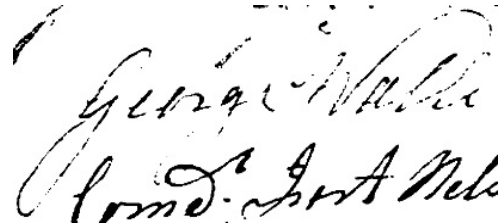 George Walls
Comdr. Fort Nels